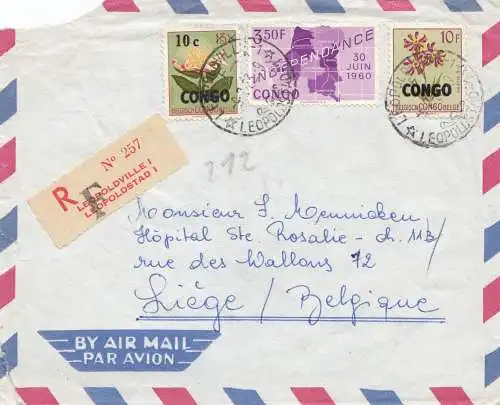 10 c
CONGO
BELGISCH CONGO BELGE
3.50F
INDEPENDANCE
30
JUIN
1960
CONGO
10F
CONGO
BELGISCH CONGO BELGE
LEOPOLDV
LEOPOLD
R
F
No 257
LEOPOLDVILLE 1
LEOPOLDSTAD 1
212
Monsieur J. Mennicken
Hôpital Ste. Rosalie - ch. 113
rue des Wallons 72
Liège / Belgique
BY AIR MAIL
PAR AVION